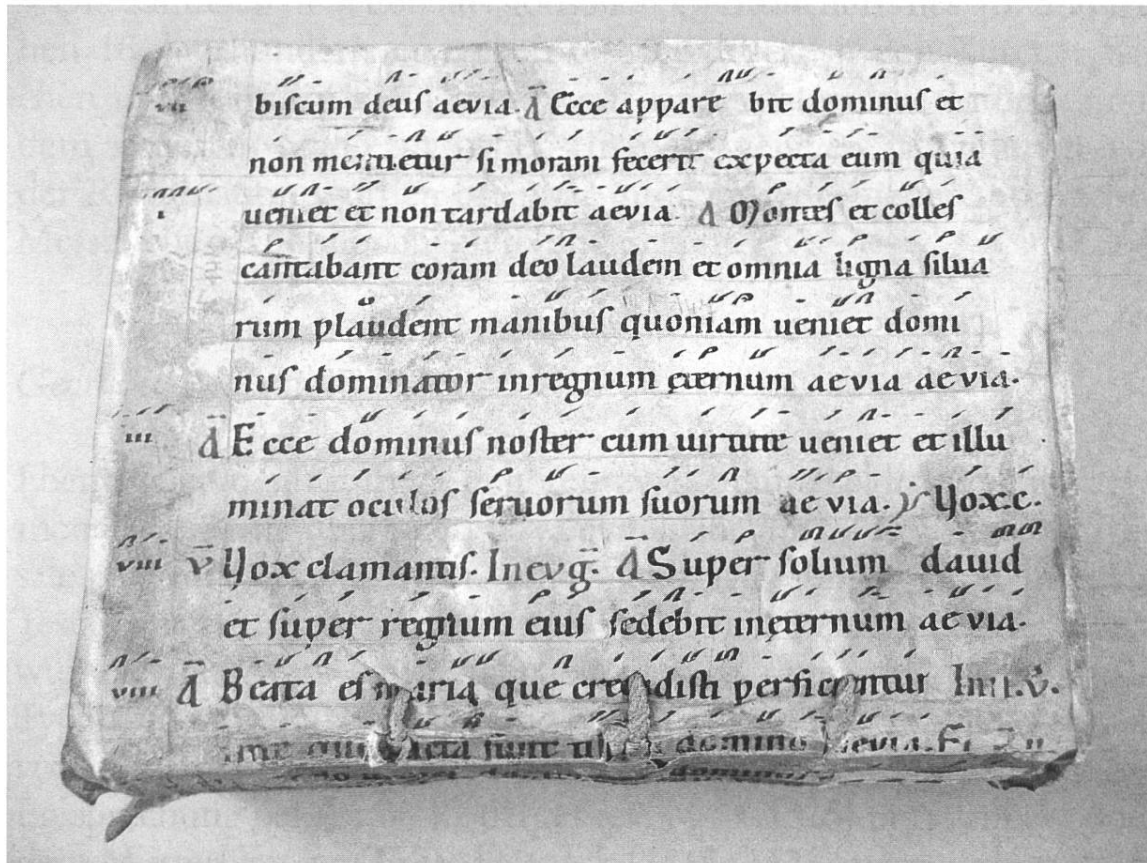 vii biscum deus aevia. A Ecce appare bit dominus et
non mentietur si moram fecerit expecta eum quia
i ueniet et non tardabit aevia. A Montes et colles
cantabant coram deo laudem et omnia ligna silua
rum plaudent manibus quoniam ueniet domi
nus dominator inregnum eternum aevia aevia.
iii A Ecce dominus noster cum uirtute ueniet et illu
minat oculos seruorum suorum aevia. Vox.c.
viii V Vox clamantis. Inevg. A Super solium dauid
et super regnum eius sedebit ineternum aevia.
viii A Beata es maria que credidisti perficientur
sunt domino
dominus